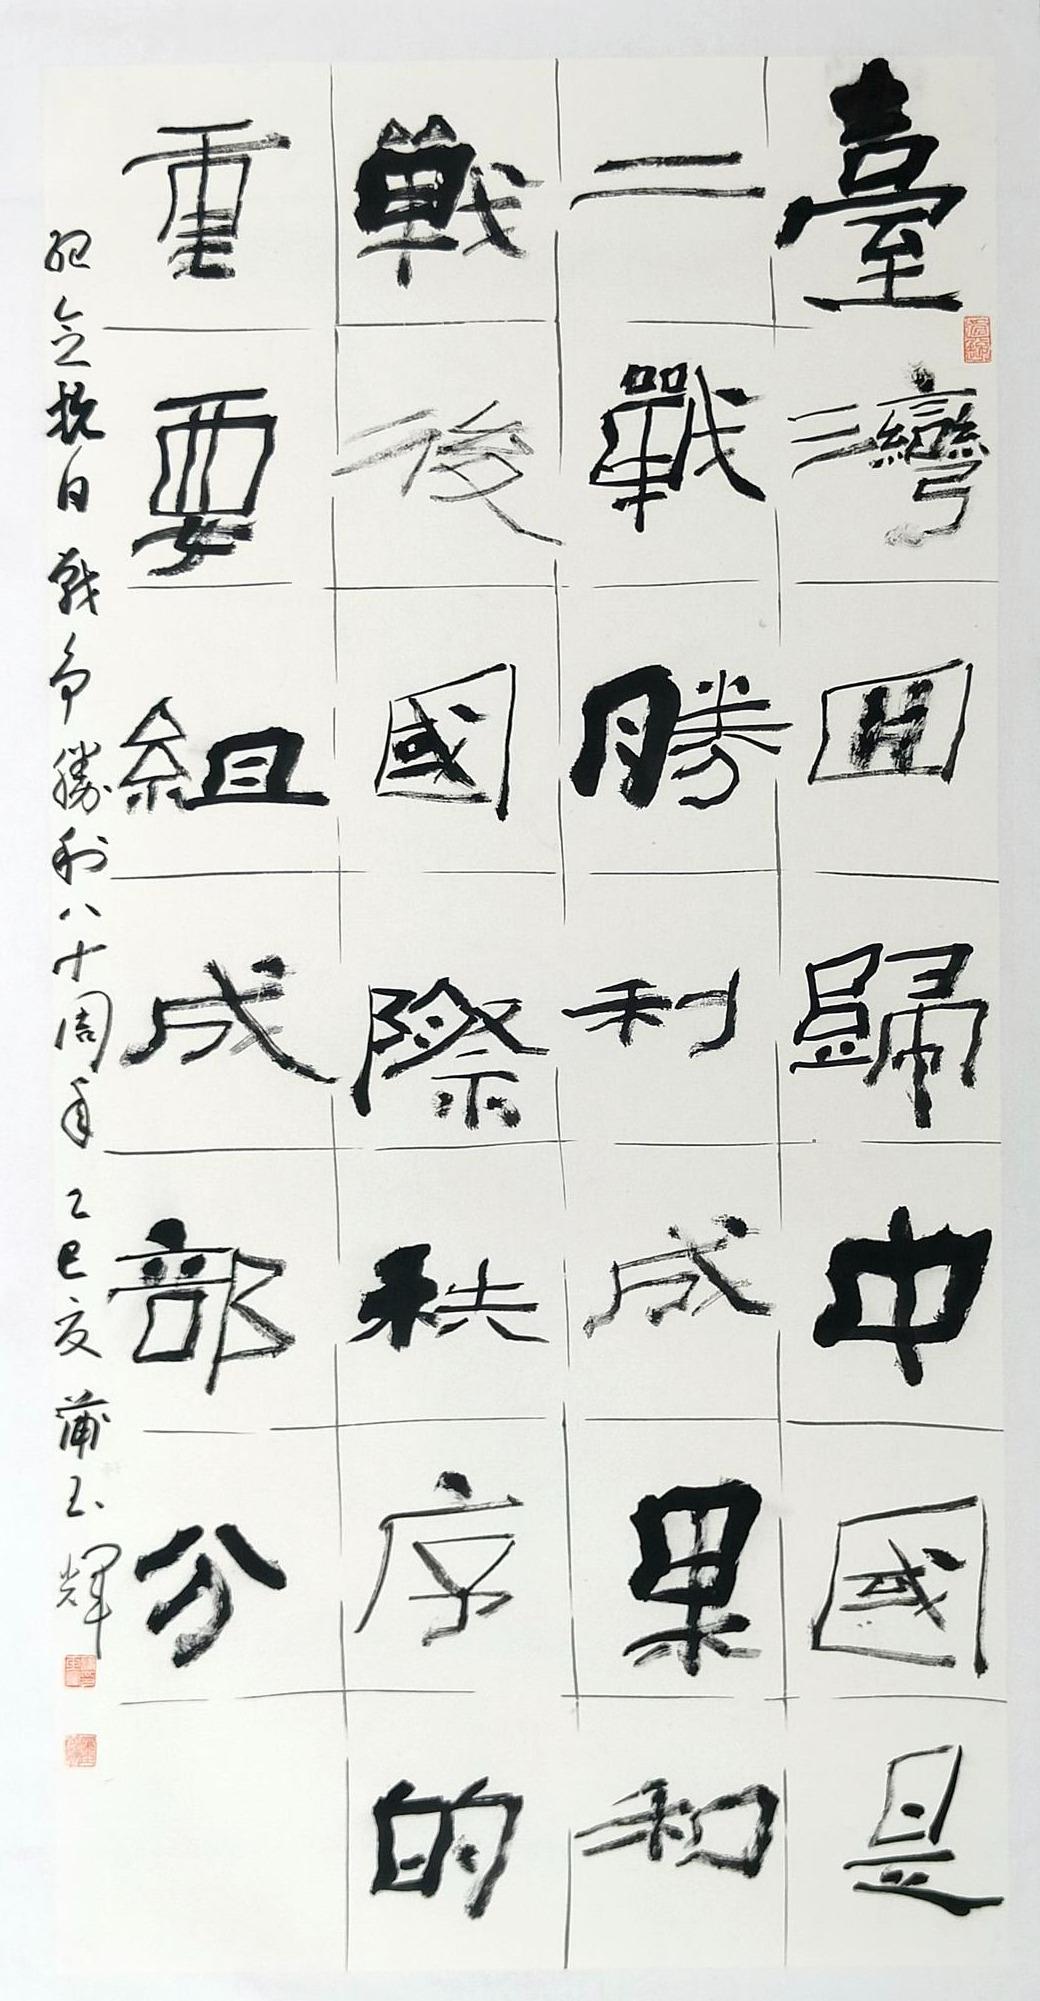 臺灣回歸中國是
二戰勝利成果和
戰後國際秩序的
重要組成部分
紀念抗日戰爭勝利八十周年 乙巳夏 蒲玉輝